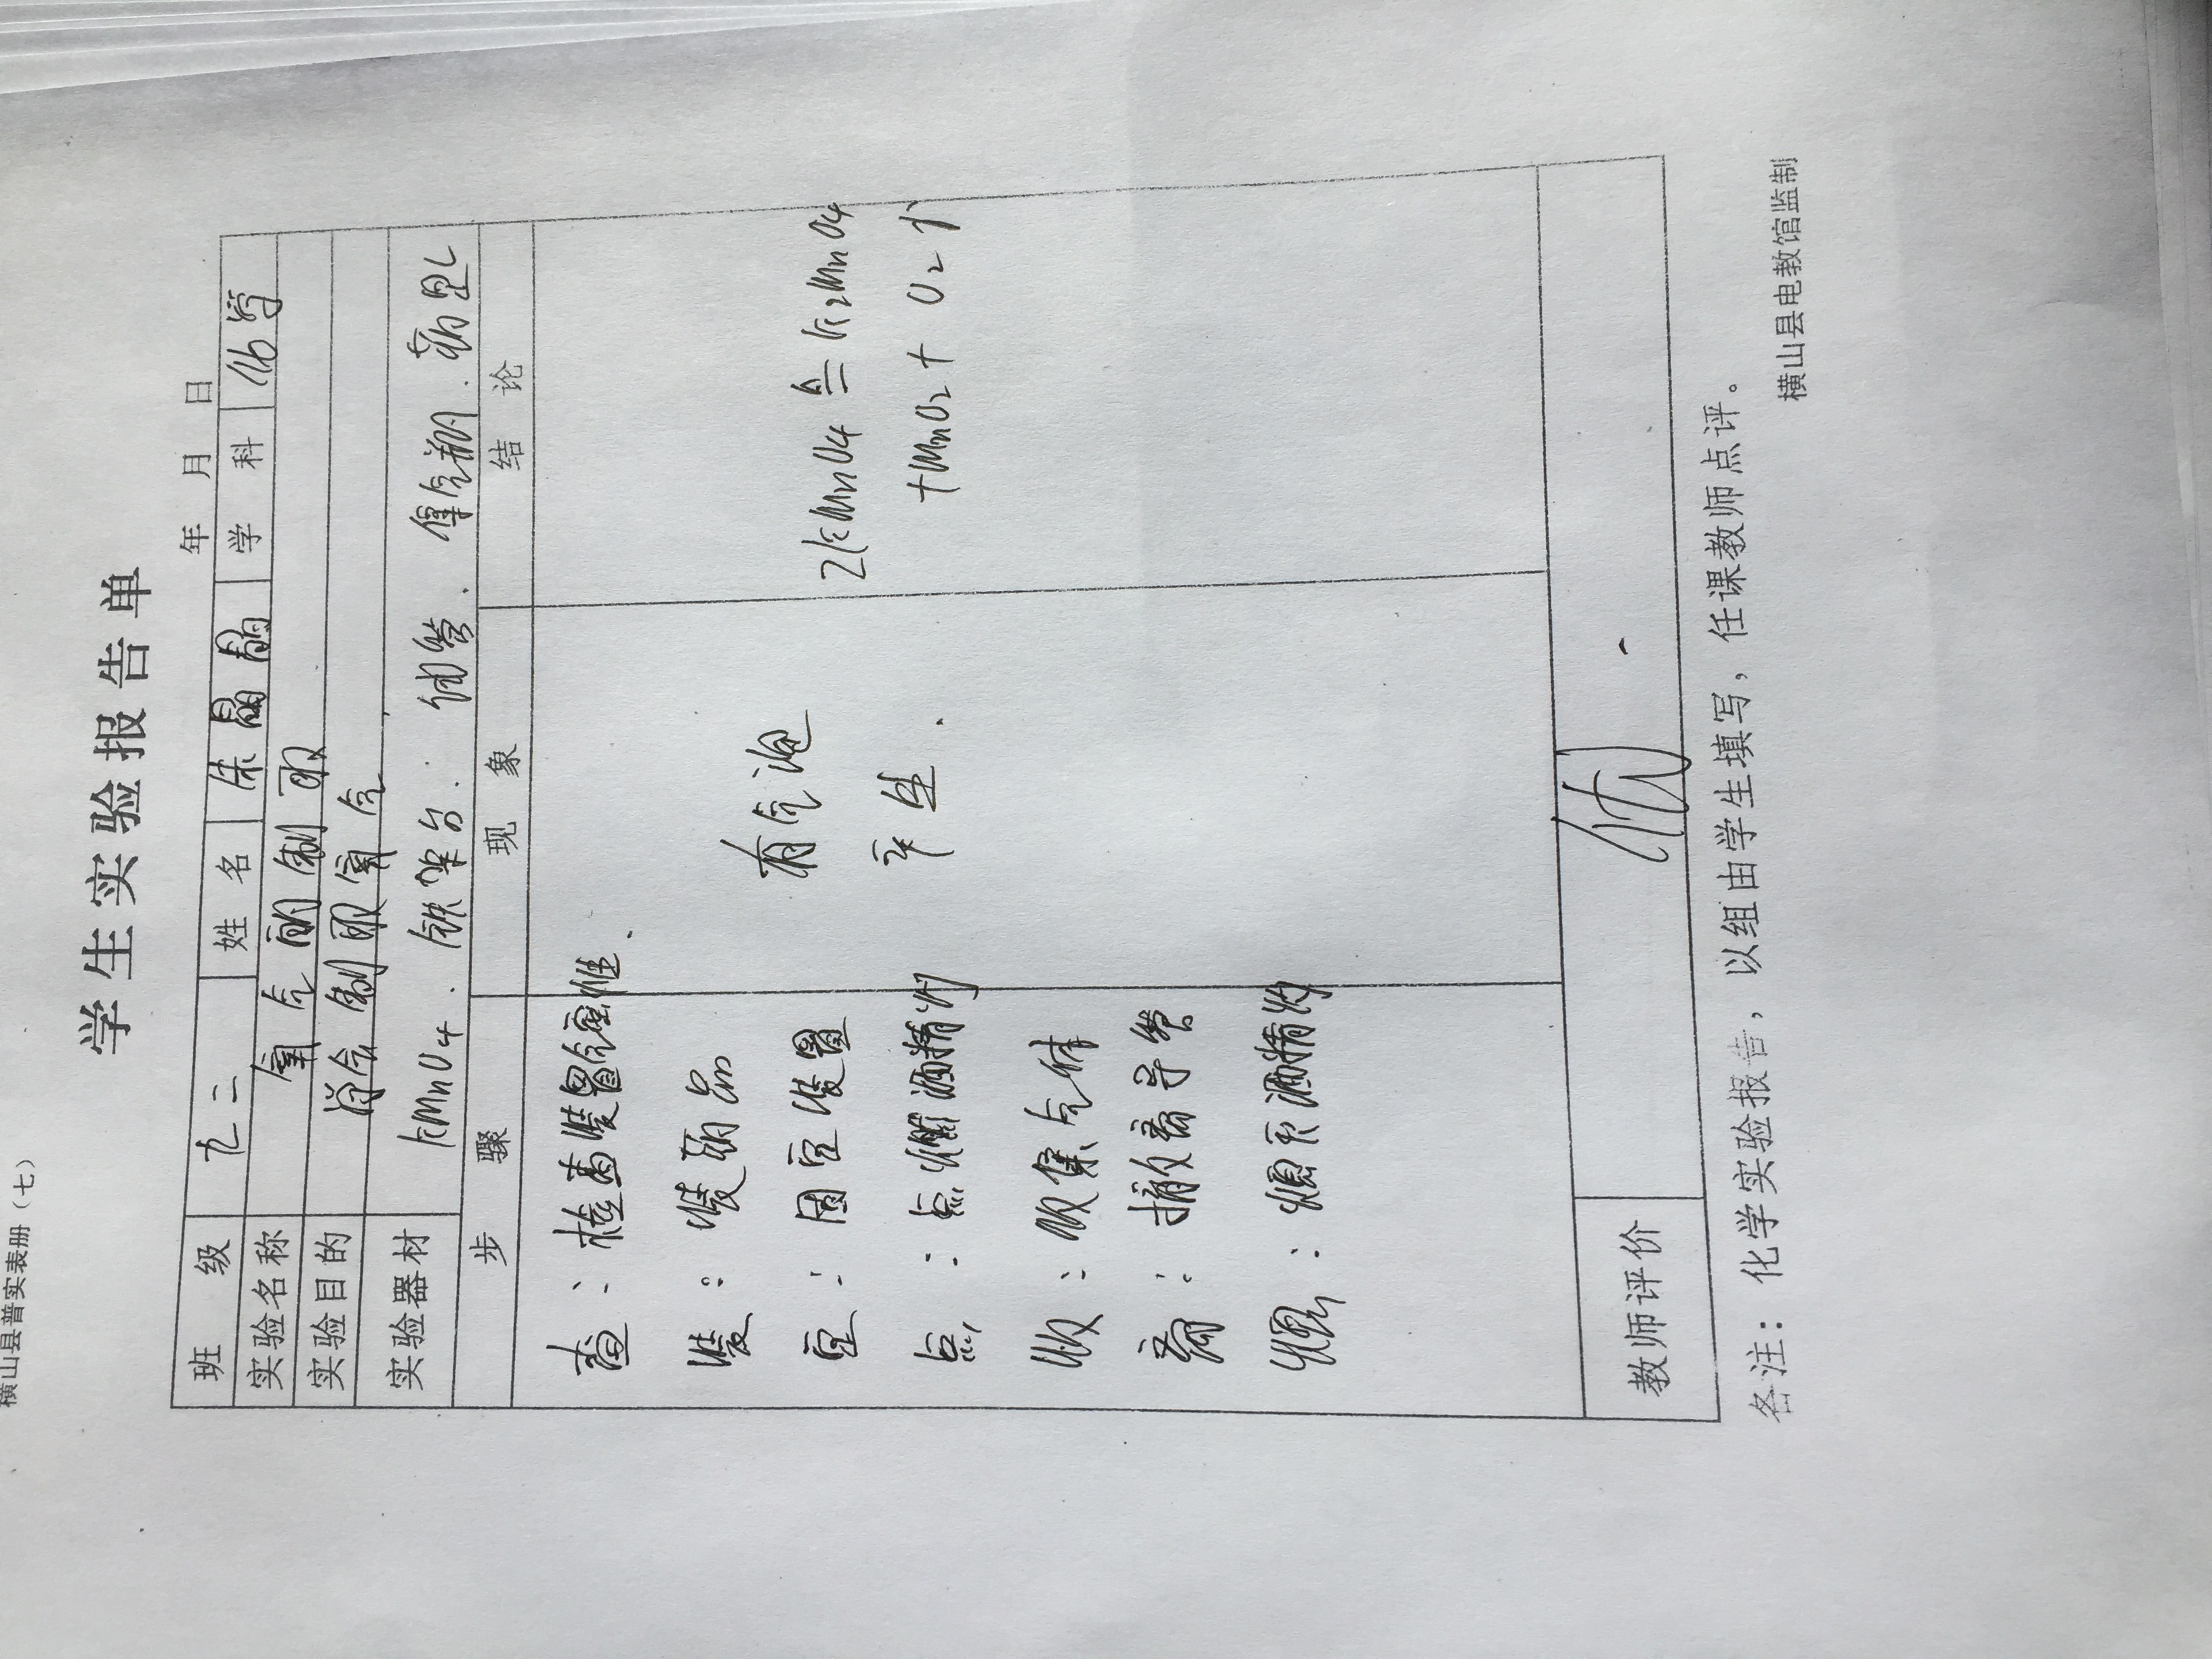 横山县普实表册（七）
学生实验报告单
年 月 日
班 级 九二 姓 名 朱晶晶 学 科 化学
实验名称 氧气的制取
实验目的 学会制取氧气
实验器材 KMnO4．铁架台．试管．集气瓶．药品
步 骤 现 象 结 论
查：检查装置气密性．
装：装药品
定：固定装置
点：点燃酒精灯
收：收集气体
离：撤离导管
熄：熄灭酒精灯
有气泡
产生．
2KMnO4 ≜ K2MnO4
+MnO2+ O2↑
教师评价
各注：化学实验报告，以组由学生填写，任课教师点评。
横山县电教馆监制